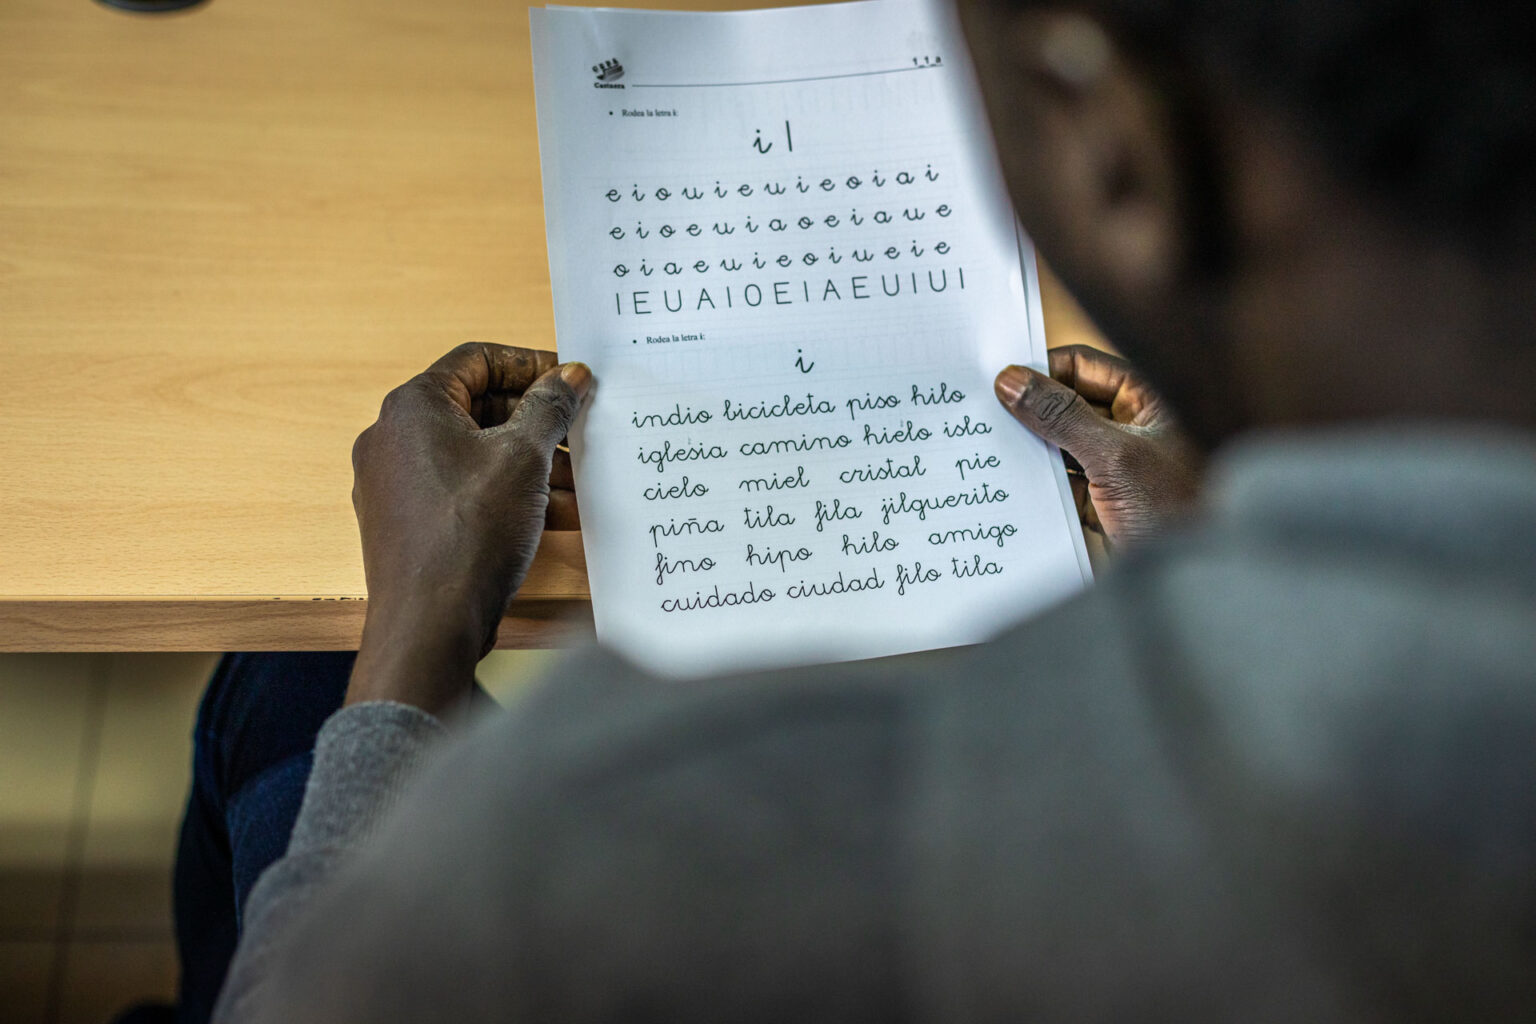 CEPA
Castuera
1_1_a
• Rodea la letra i:
i I
e i o u i e u i e o i a i
e i o e u i a o e i a u e
o i a e u i e o i u e i e
I E U A I O E I A E U I U I
• Rodea la letra i:
i
indio bicicleta piso hilo
iglesia camino hielo isla
cielo miel cristal pie
piña tila fila jilguerito
fino hipo hilo amigo
cuidado ciudad filo tila